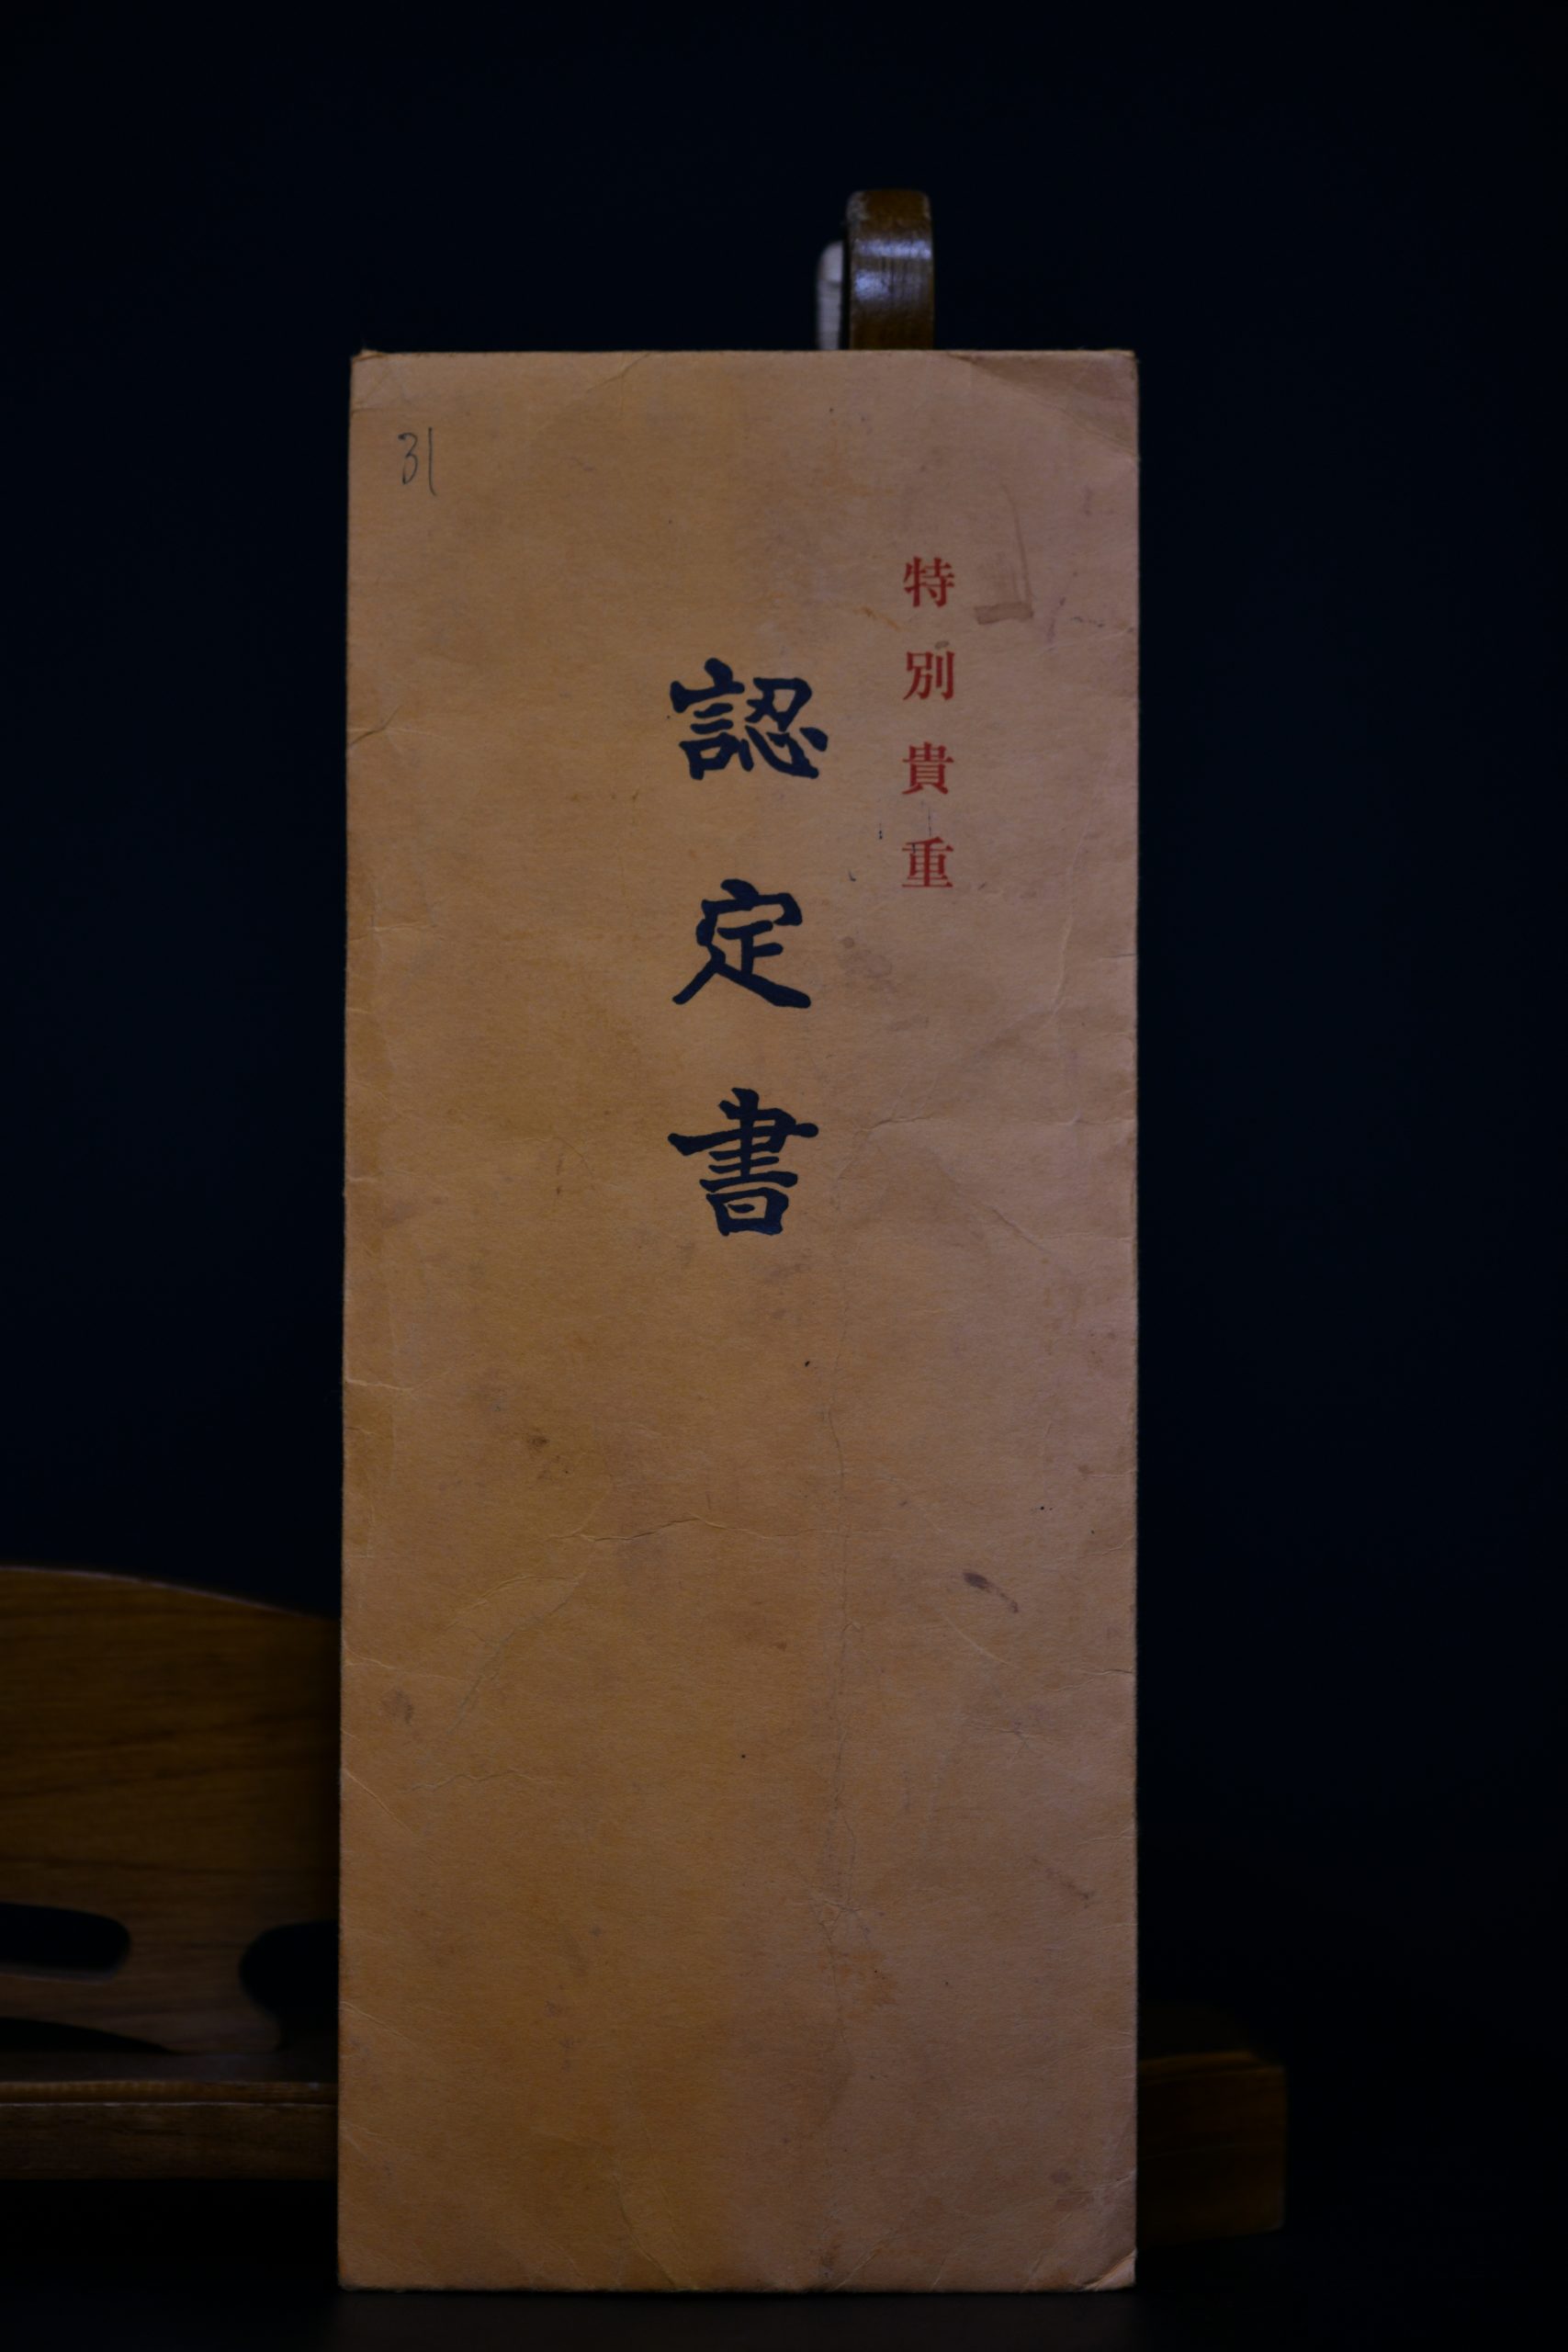 31
特別貴重
認定書